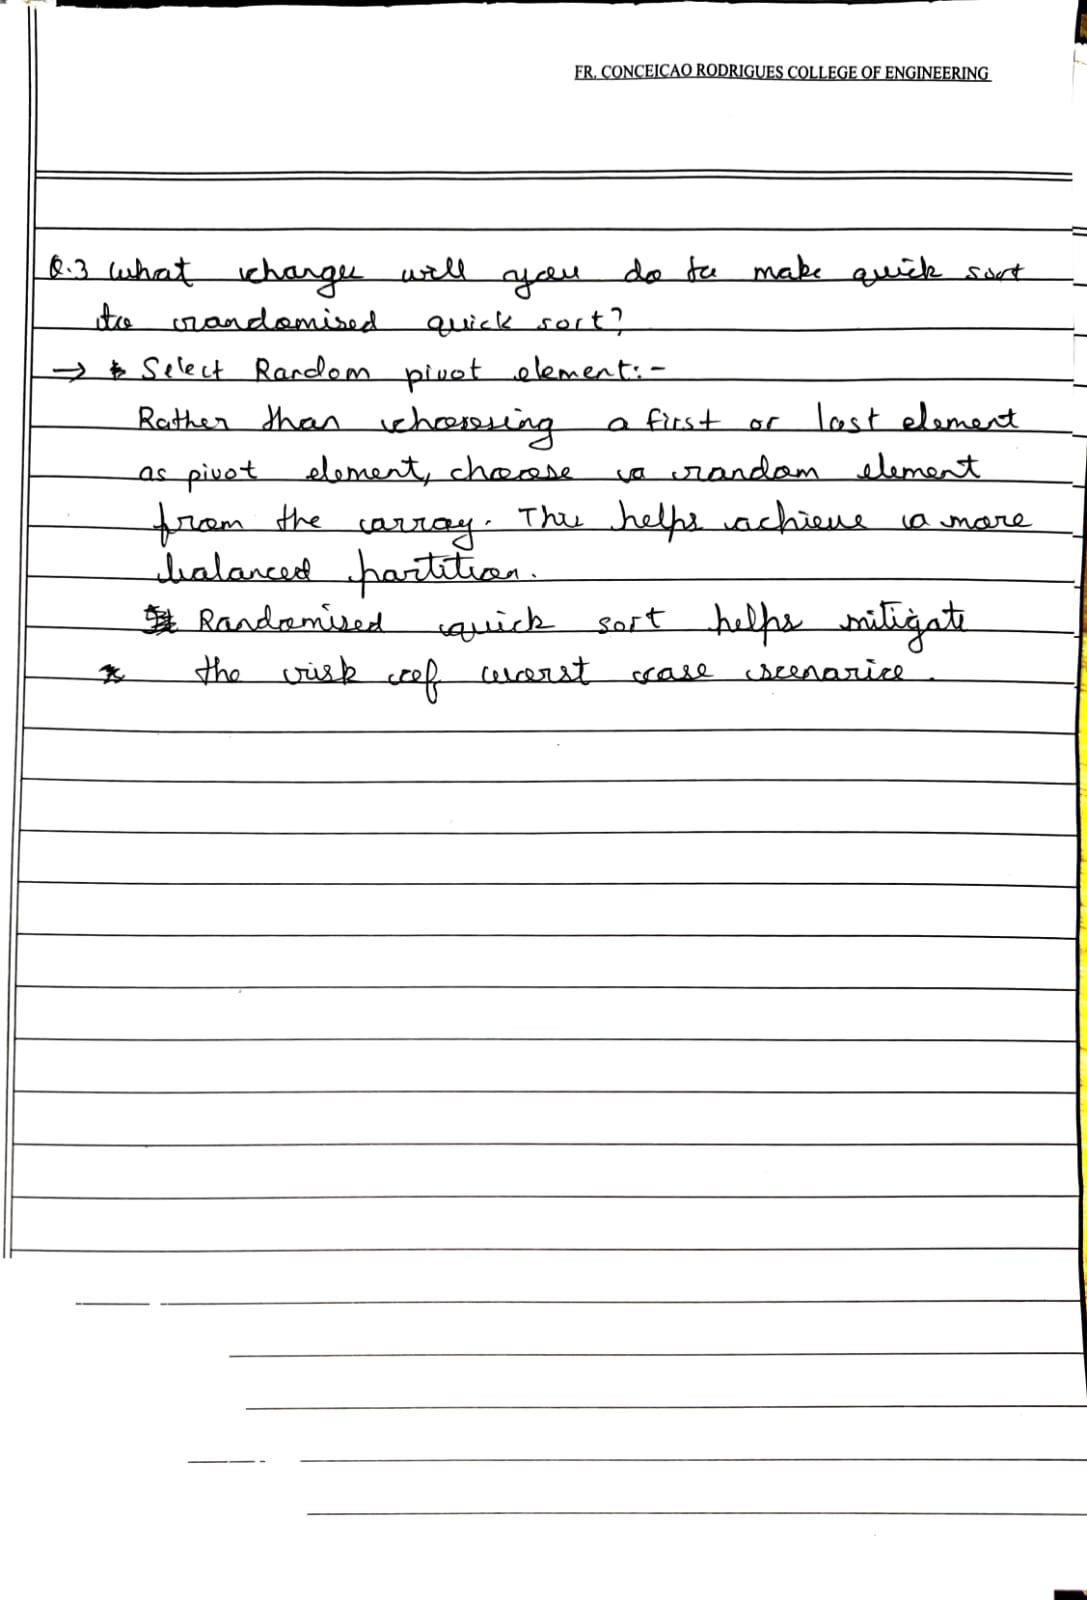 FR. CONCEICAO RODRIGUES COLLEGE OF ENGINEERING
Q.3 What changes will you do to make quick sort
to randomised quick sort?
→ Select Random pivot element:-
Rather than choosing a first or last element
as pivot element, choose a random element
from the array. This helps achieve a more
balanced partition.
Randomised quick sort helps mitigate
the risk of worst case scenario.